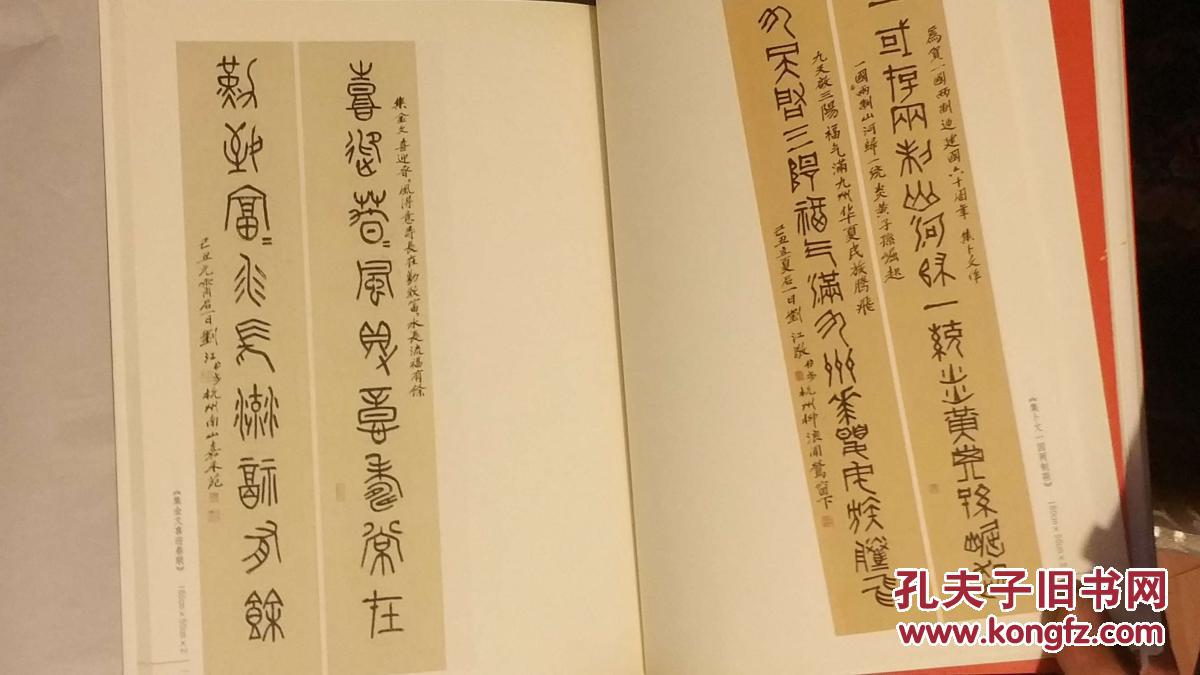 集金文喜迎春〓風得意壽長在勤致富〓水長流福有餘
喜迎春〓風得意壽常在
勤致富〓水長流福有餘
己丑元宵后一日劉江書於杭州南山嘉木苑
《集金文喜迎春联》
為賀一國兩制迎建國六十周年 集卜文作
一國兩制山河歸一統炎黃子孫崛起
一國兩制山河歸一統炎黃子孫崛起
九天啟三陽福气滿九州华夏民族騰飛
九天啟三陽福气滿九州华夏民族騰飛
己丑立夏后一日劉江敬書於杭州柳浪聞鶯窗下
《集卜文一国两制联》
孔夫子旧书网
www.kongfz.com